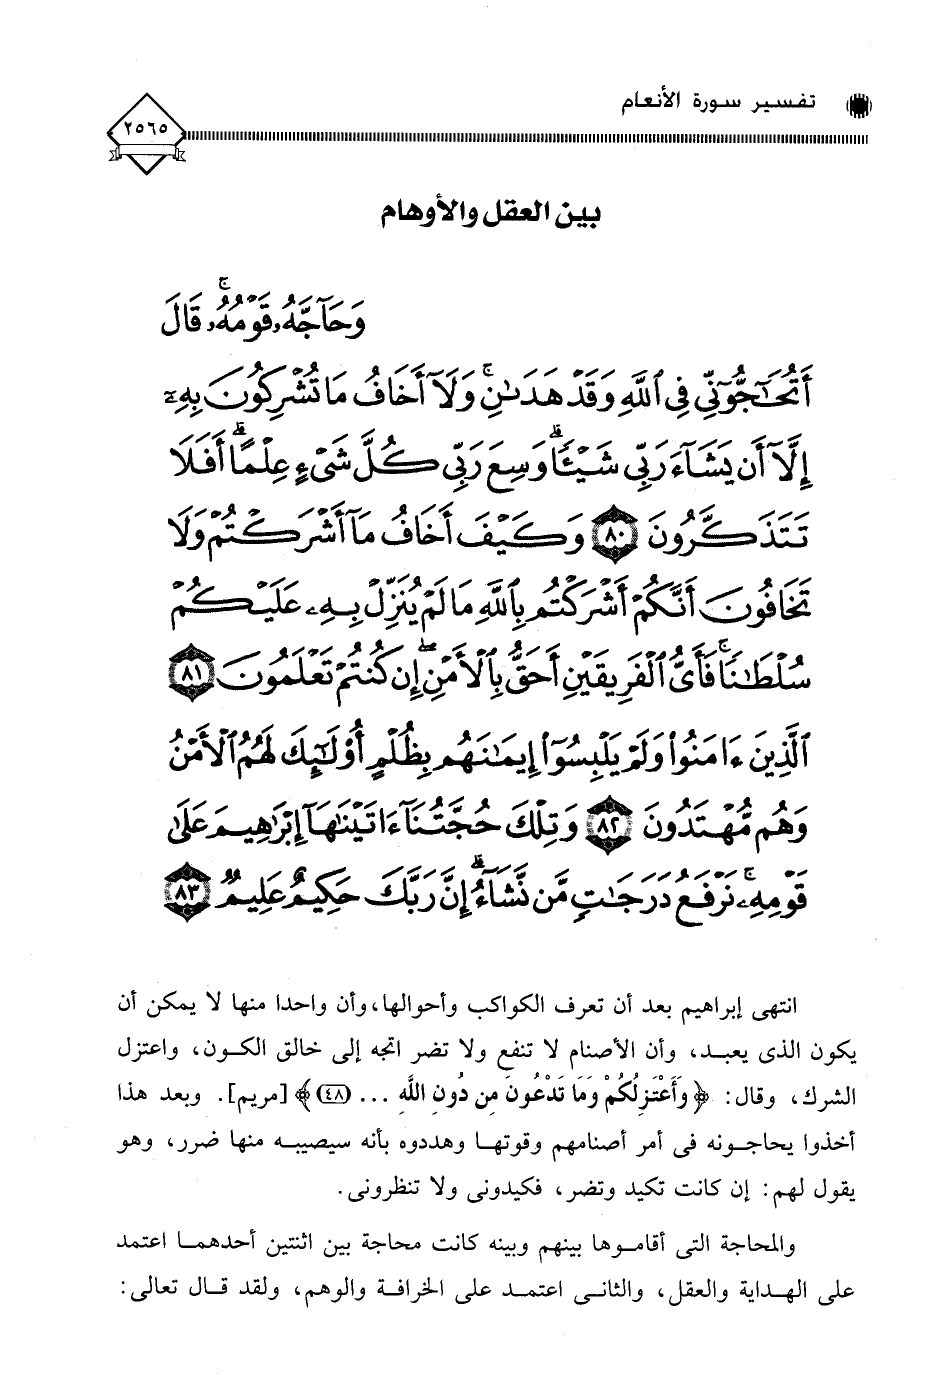 تفسير سورة الأنعام
٢٥٦٥
بين العقل والأوهام
وَحَآجَّهُۥ قَوْمُهُۥ ۚ قَالَ
أَتُحَـٰٓجُّوٓنِّى فِى ٱللَّهِ وَقَدْ هَدَىٰنِ ۚ وَلَآ أَخَافُ مَا تُشْرِكُونَ بِهِۦٓ
إِلَّآ أَن يَشَآءَ رَبِّى شَيْـًٔا ۗ وَسِعَ رَبِّى كُلَّ شَىْءٍ عِلْمًا ۗ أَفَلَا
تَتَذَكَّرُونَ ٨٠ وَكَيْفَ أَخَافُ مَآ أَشْرَكْتُمْ وَلَا
تَخَافُونَ أَنَّكُمْ أَشْرَكْتُم بِٱللَّهِ مَا لَمْ يُنَزِّلْ بِهِۦ عَلَيْكُمْ
سُلْطَـٰنًا ۚ فَأَىُّ ٱلْفَرِيقَيْنِ أَحَقُّ بِٱلْأَمْنِ ۖ إِن كُنتُمْ تَعْلَمُونَ ٨١
ٱلَّذِينَ ءَامَنُوا۟ وَلَمْ يَلْبِسُوٓا۟ إِيمَـٰنَهُم بِظُلْمٍ أُو۟لَـٰٓئِكَ لَهُمُ ٱلْأَمْنُ
وَهُم مُّهْتَدُونَ ٨٢ وَتِلْكَ حُجَّتُنَآ ءَاتَيْنَـٰهَآ إِبْرَٰهِيمَ عَلَىٰ
قَوْمِهِۦ ۚ نَرْفَعُ دَرَجَـٰتٍ مَّن نَّشَآءُ ۗ إِنَّ رَبَّكَ حَكِيمٌ عَلِيمٌ ٨٣
انتهى إبراهيم بعد أن تعرف الكواكب وأحوالها، وأن واحدا منها لا يمكن أن
يكون الذى يعبد، وأن الأصنام لا تنفع ولا تضر اتجه إلى خالق الكون، واعتزل
الشرك، وقال: ﴿وَأَعْتَزِلُكُمْ وَمَا تَدْعُونَ مِن دُونِ اللَّهِ ... (٤٨)﴾ [مريم]. وبعد هذا
أخذوا يحاجونه فى أمر أصنامهم وقوتها وهددوه بأنه سيصيبه منها ضرر، وهو
يقول لهم: إن كانت تكيد وتضر، فكيدونى ولا تنظرونى.
والمحاجة التى أقاموها بينهم وبينه كانت محاجة بين اثنتين أحدهما اعتمد
على الهداية والعقل، والثانى اعتمد على الخرافة والوهم، ولقد قال تعالى: